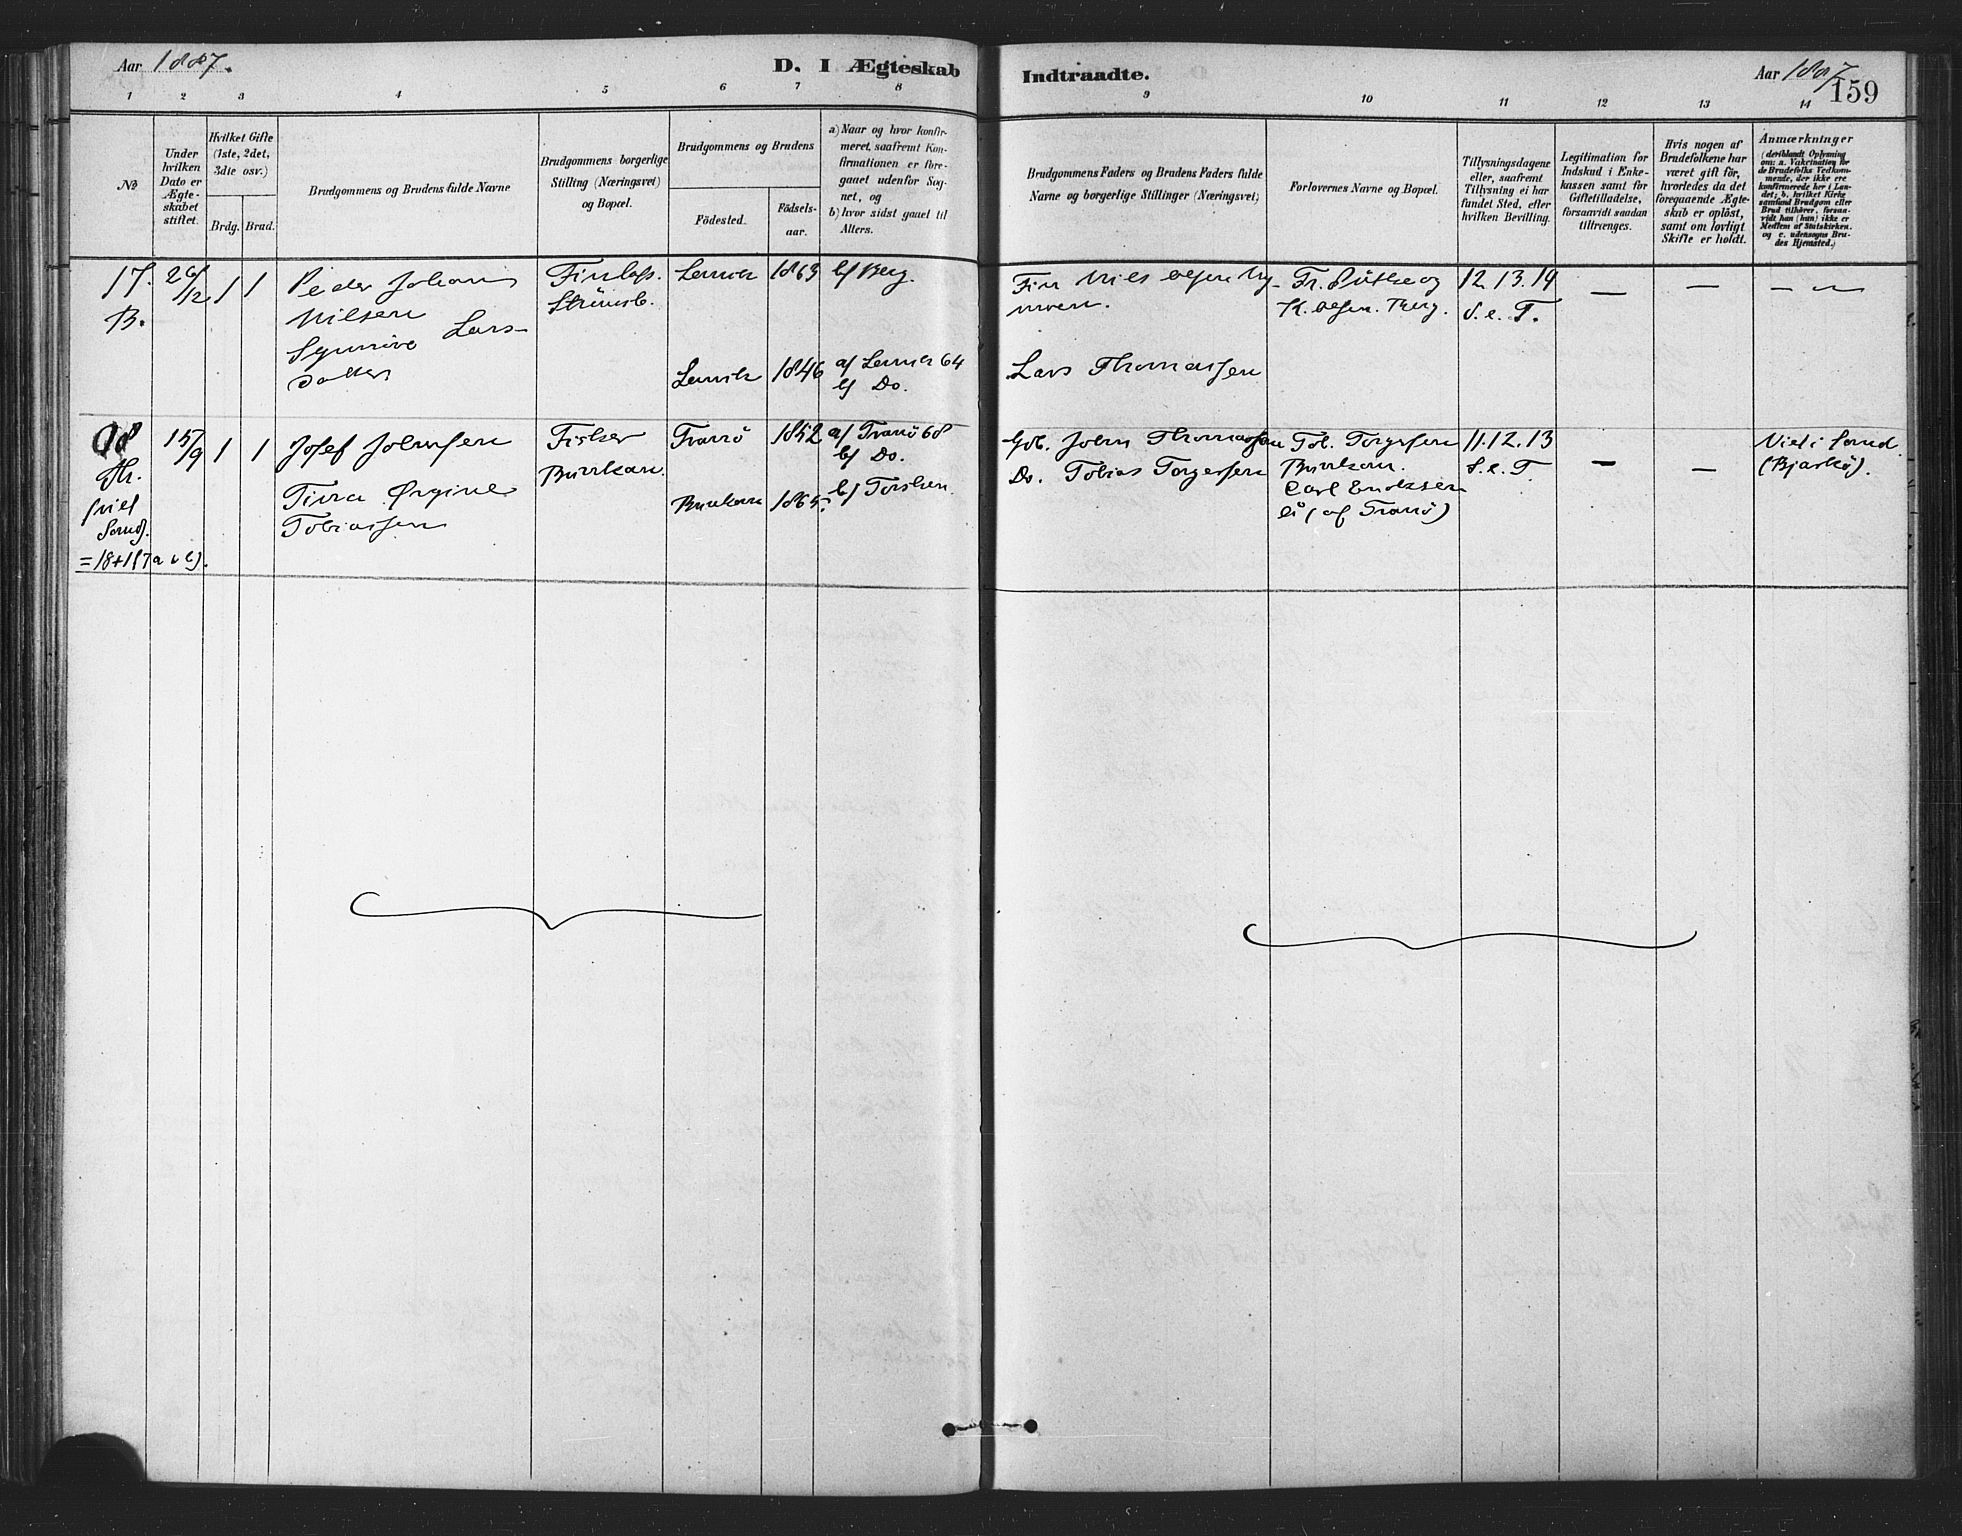 Aar 1887.
D. I Ægteskab
Indtraadte.
Aar 1887
159
1 2 3 4 5 6 7 8
9 10 11 12 13 14
No
Under hvilken Dato er Ægteskabet stiftet.
Hvilket Gifte (1ste, 2det, 3dte osv.)
Brdg. Brud.
Brudgommens og Brudens fulde Navne
Brudgommens borgerlige Stilling (Næringsvei) og Bopæl.
Brudgommens og Brudens
Födested.
Födsels-aar.
a) Naar og hvor konfir-
meret, saafremt Kon-
firmationen er fore-
gaaet udenfor Sog-
net, og
b) hvor sidst gaaet til
Alters.
Brudgommens Faders og Brudens Faders fulde
Navne og borgerlige Stillinger (Næringsvei)
Forlovernes Navne og Bopæl.
Tillysningsdagene
eller, saafremt
Tillysning ei har
fundet Sted, efter
hvilken Bevilling.
Legitimation for
Indskud i Enke-
kassen samt for
Giftetilladelse,
forsaavidt saadan
tiltrænges.
Hvis nogen af
Brudefolkene har
været gift för,
hvorledes da det
foregaaende Ægte-
skab er oplöst,
samt om lovligt
Skifte er holdt.
Anmærkninger
(deriblandt Oplysning
om: a. Vakcination for
de Brudefolks Vedkom-
mende, der ikke ere
konfirmerede her i Lan-
det; b. hvilket Kirke-
samfund Brudgom eller
Brud tilhörer, forsaa-
vidt han (hun) ikke er
Medlem af Statskirken.
og c. udensogns Bru-
des Hjemsted.)
17. 26/12 1 1 Peder Johan
B. Nilsen
Synnöve Lars-
datter
Strömsb.
Lenvik 1863 b/ Berg.
Lenvik 1846 a/ Lenvik 64
b/ Do.
Fin Nils Olsen
Lars Thomassen
K. Olsen. Berg.
12. 13. 14
S. e. T.
18 15/9 1 1 Josef Johnsen
Tina Ørgine
Tobiassen
= 18+117 a + b).
Fisker
Tranö 1852 a/ Tranö 68
b/ Do.
1865. b/ Torsken.
Gdb. John Thomassen
Do. Tobias Torgersen
Tob. Torgersen
Carl Eriksen
(af Tranö)
11. 12. 13
S. e. T.
Viet i Sand
(Bjarkö).